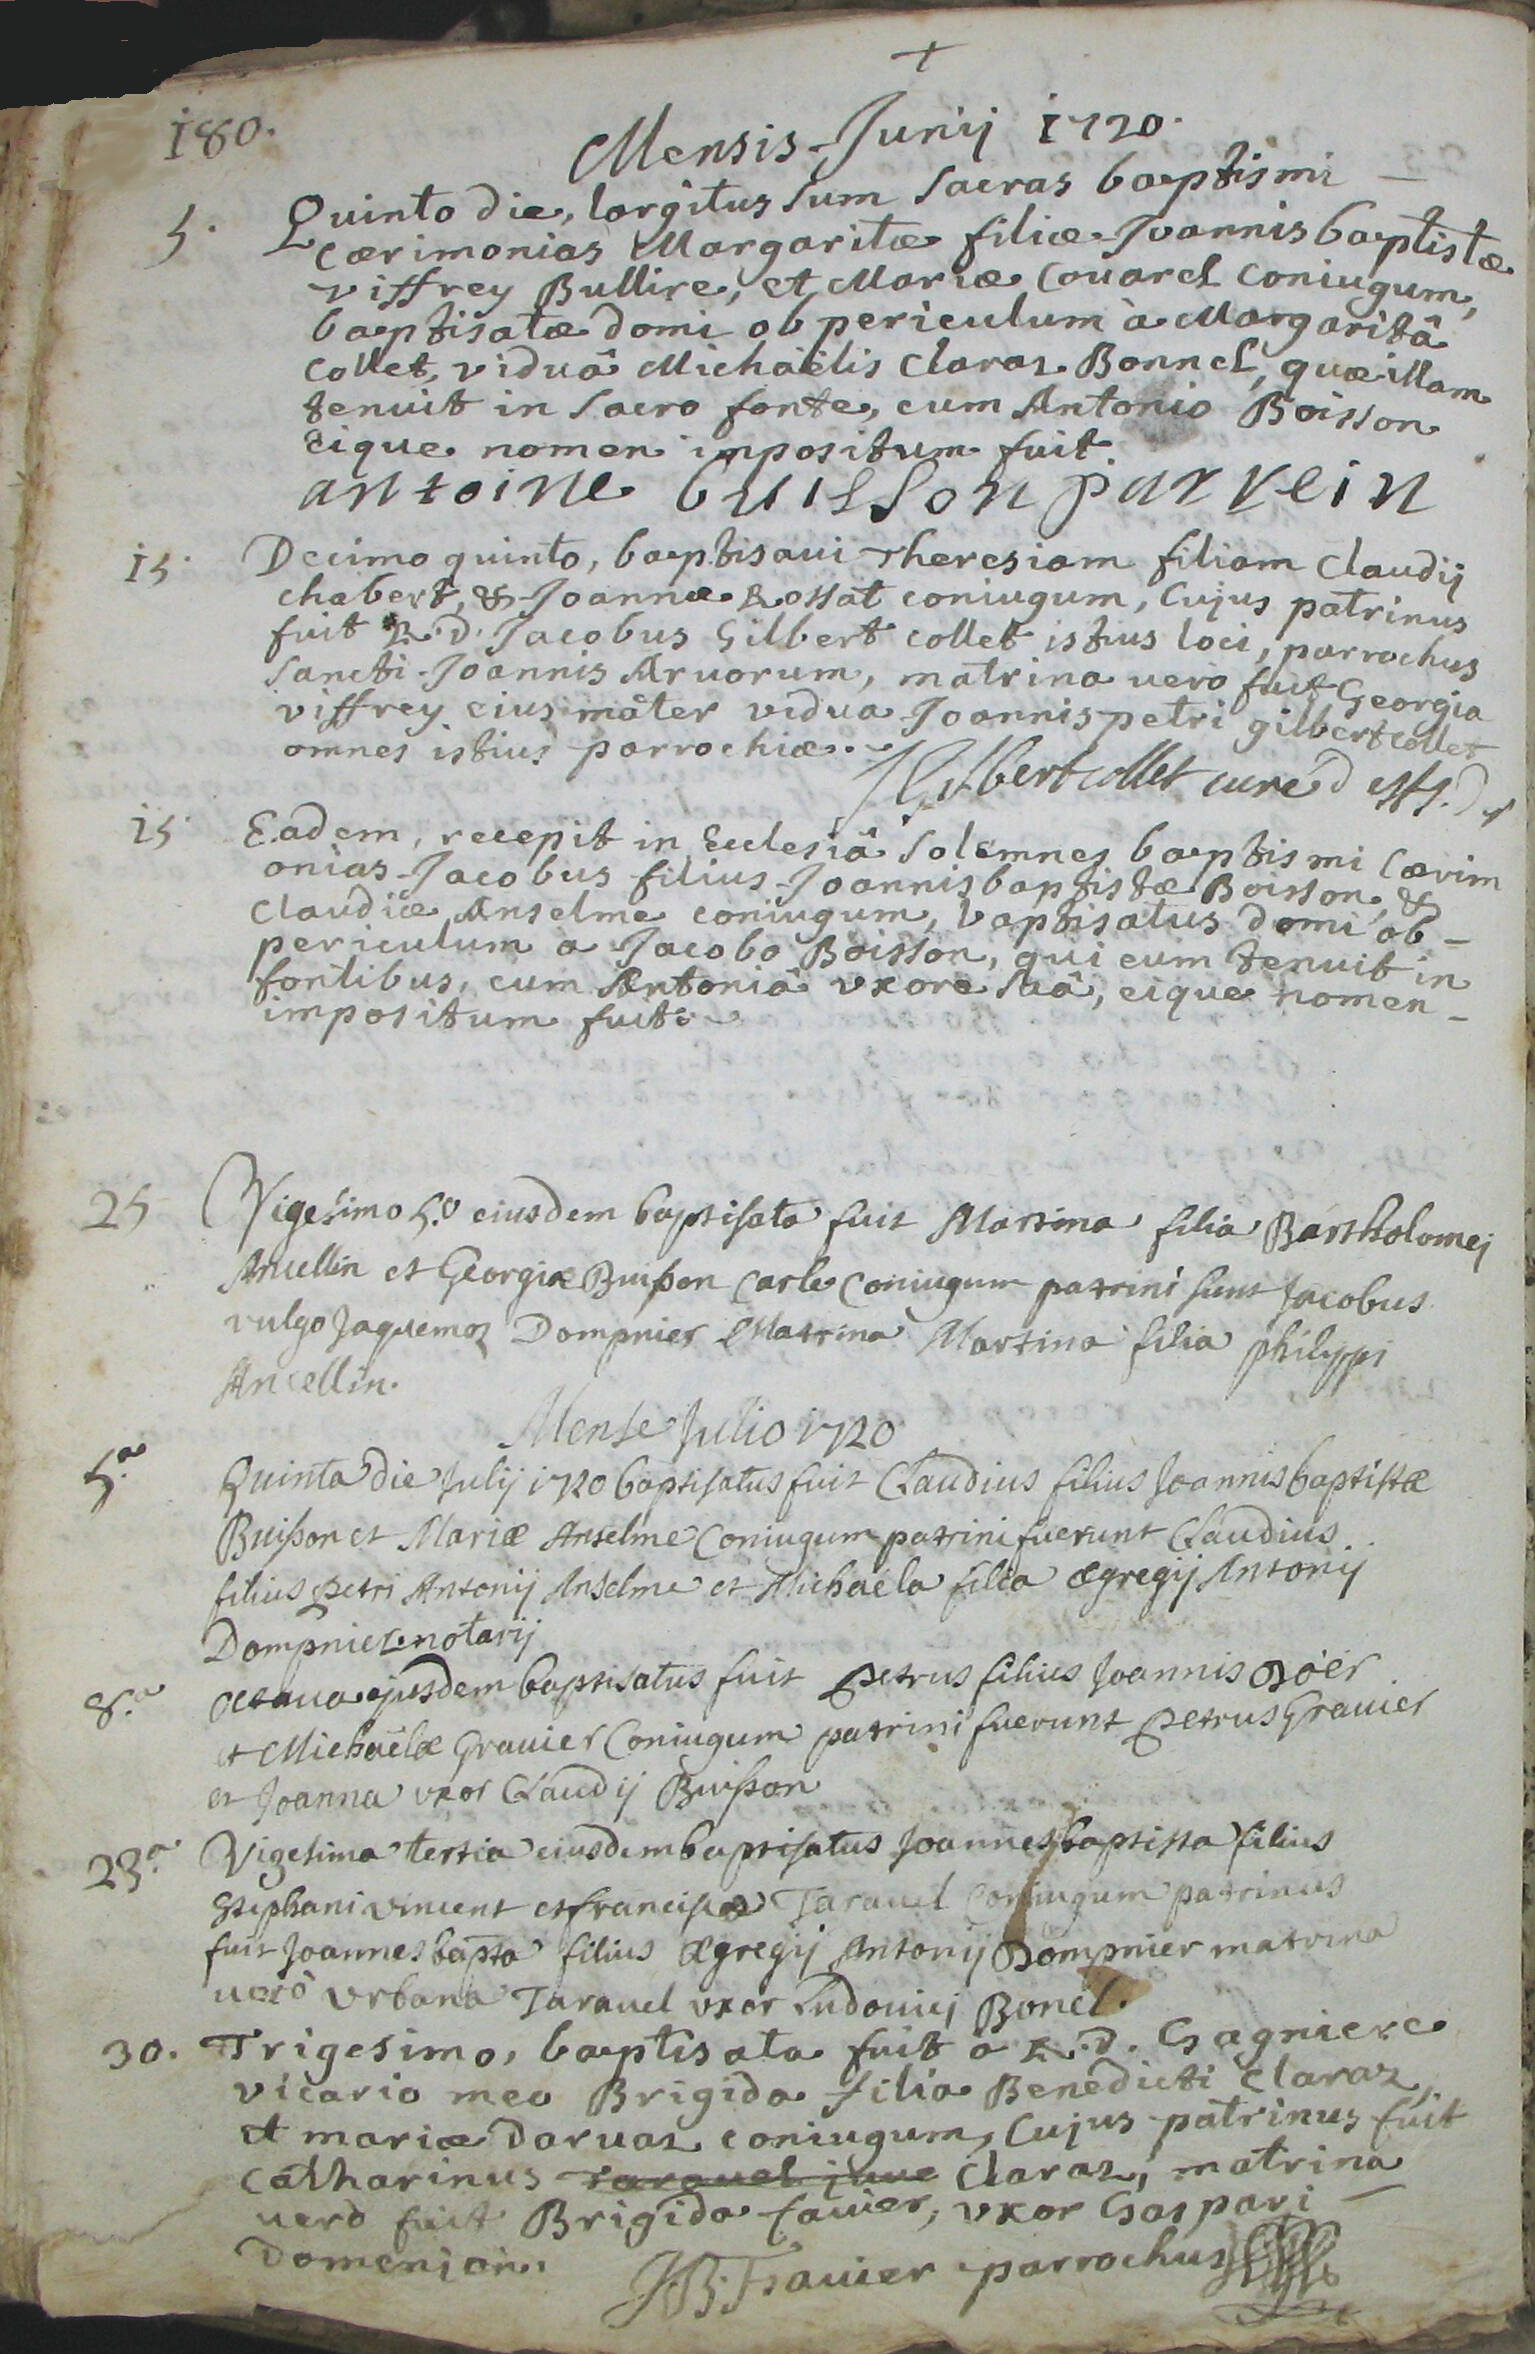 +
180.
Mensis Junij 1720.
5. Quinto die, largitus sum sacras baptismi
cærimonias Margaritæ filiæ Joannis baptistæ
viffrey Bullire, et Mariæ Couarel coniugum,
baptisatæ domi ob periculum à Margaritâ
Collet, viduâ Michaëlis Claraz Bonnel, quæ illam
tenuit in sacro fonte, cum Antonio Boisson
eique nomen impositum fuit.
antoine buisson parrein
15. Decimo quinto, baptisaui Theresiam filiam Claudij
chabert, & Joannæ Rossat coniugum, Cujus patrinus
fuit R.D. Jacobus Gilbert collet istius loci, parrochus
sancti Joannis Aruorum, matrina uerò fuit Georgia
viffrey eius mâter vidua Joannis petri gilbert collet
omnes istius parrochiæ.
Gilbert collet curé d
15 Eadem, recepit in Ecclesiâ solemnes baptismi Cærim
onias Jacobus filius Joannis baptistæ Boisson, &
Claudiæ Anselme coniugum, baptisatus domi ob
periculum a Jacobo Boisson, qui eum tenuit in
fontibus, cum Antoniâ vxore suâ, eique nomen
impositum fuit.
25 Vigesimo 5.o eiusdem baptisata fuit Martina filia Bartholomej
Ancellin et Georgiæ Buisson Carle Coniugum patrini sunt Jacobus
vulgo Jaquemoz Dompnier Matrina Martina filia philippi
Ancellin.
Mense Julio 1720
5.a Quinta die Julij 1720 baptisatus fuit Claudius filius Joannis baptistæ
Buisson et Mariæ Anselme Coniugum patrini fuerunt Claudius
filius Petri Antonij Anselme et Michaëla filia ægregij Antonij
Dompnier notarij
8.a octaua ejusdem baptisatus fuit Petrus filius Joannis
et Michaëlæ Grauier Coniugum patrini fuerunt Petrus Grauier
et Joanna vxor Claudij Buisson
23.a Vigesima tertia eiusdem baptisatus Joannes baptista filius
Stephani vincent et francisca Tarauel Coniugum patrinus
fuit Joannes bapta filius ægregij Antonij Dompnier matrina
uerò Vrbana Tarauel vxor Ludouici Bonel.
30. Trigesimo, baptisata fuit a R.D. Gagniere
vicario meo Brigida filia Benedicti Claraz,
et mariæ Daruaz coniugum, Cujus patrinus fuit
Catharinus Tarauel Claraz, matrina
uero fuit Brigida fauier, vxor Gaspari
Domenjon.
J.B. Frauier parrochus